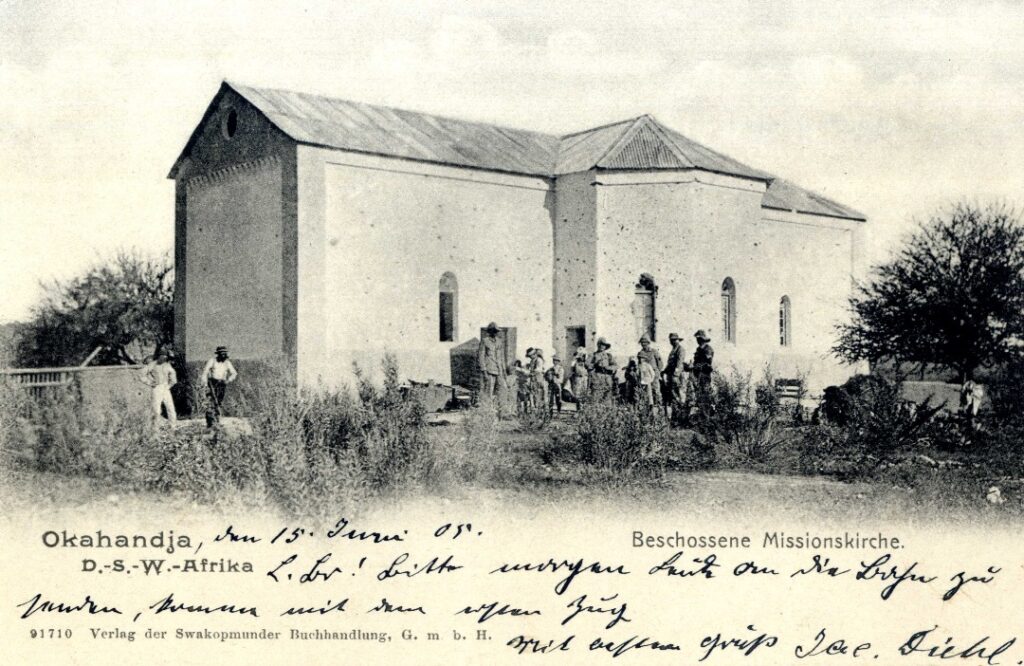 Okahandja, den 15. Juni 05. Beschossene Missionskirche.
D.-S.-W.-Afrika L. Br! Bitte morgen Leute an die Bahn zu
senden, komme mit dem ersten Zug
91710 Verlag der Swakopmunder Buchhandlung, G. m b. H.
Mit besten Gruß Jac. Diehl.